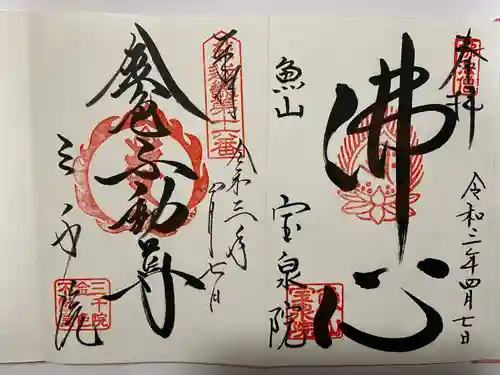 奉拝
令和三年四月七日
佛心
魚山
宝泉院
奉拝
十六番
令和三年
四月七日
金色不動尊
三千院
三千院